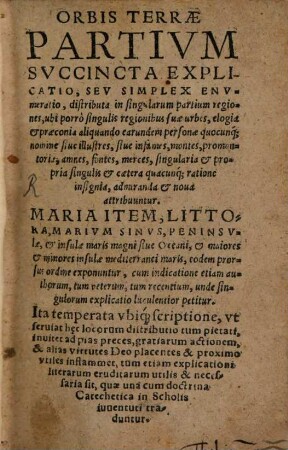 ORBIS TERRÆ
PARTIVM
SVCCINCTA EXPLI-
CATIO, SEV SIMPLEX ENV-
meratio, distributa in singularum partium regio-
nes, vbi porrò singulis regionibus suæ vrbes, elogia
& præconia aliquando earundem personæ quocunq;
nomine siue illustres, siue infames, montes, promon-
toria, amnes, fontes, merces, singularia & pro-
pria singulis & cætera quacunq; ratione
insignia, admiranda & noua
attribuuntur.
MARIA ITEM, LITTO-
RA, MARIVM SINVS, PENINSV-
læ, & insulæ maris magni siue Oceani, & maiores
& minores insulæ mediterranei maris, eodem pror-
sus ordine exponuntur, cum indicatione etiam au-
thorum, tum veterum, tum recentium, vnde sin-
gulorum explicatio luculentior petitur.
Ita temperata vbiq; scriptione, vt
seruiat hæc locorum distributio tum pietati,
inuitet ad pias preces, gratiarum actionem,
& alias virtutes Deo placentes & proximo
vtiles inflammet, tum etiam explicationi
literarum eruditarum vtilis & neces-
saria sit, quæ vna cum doctrina
Catechetica in Scholis
iuuentuti tra-
duntur.